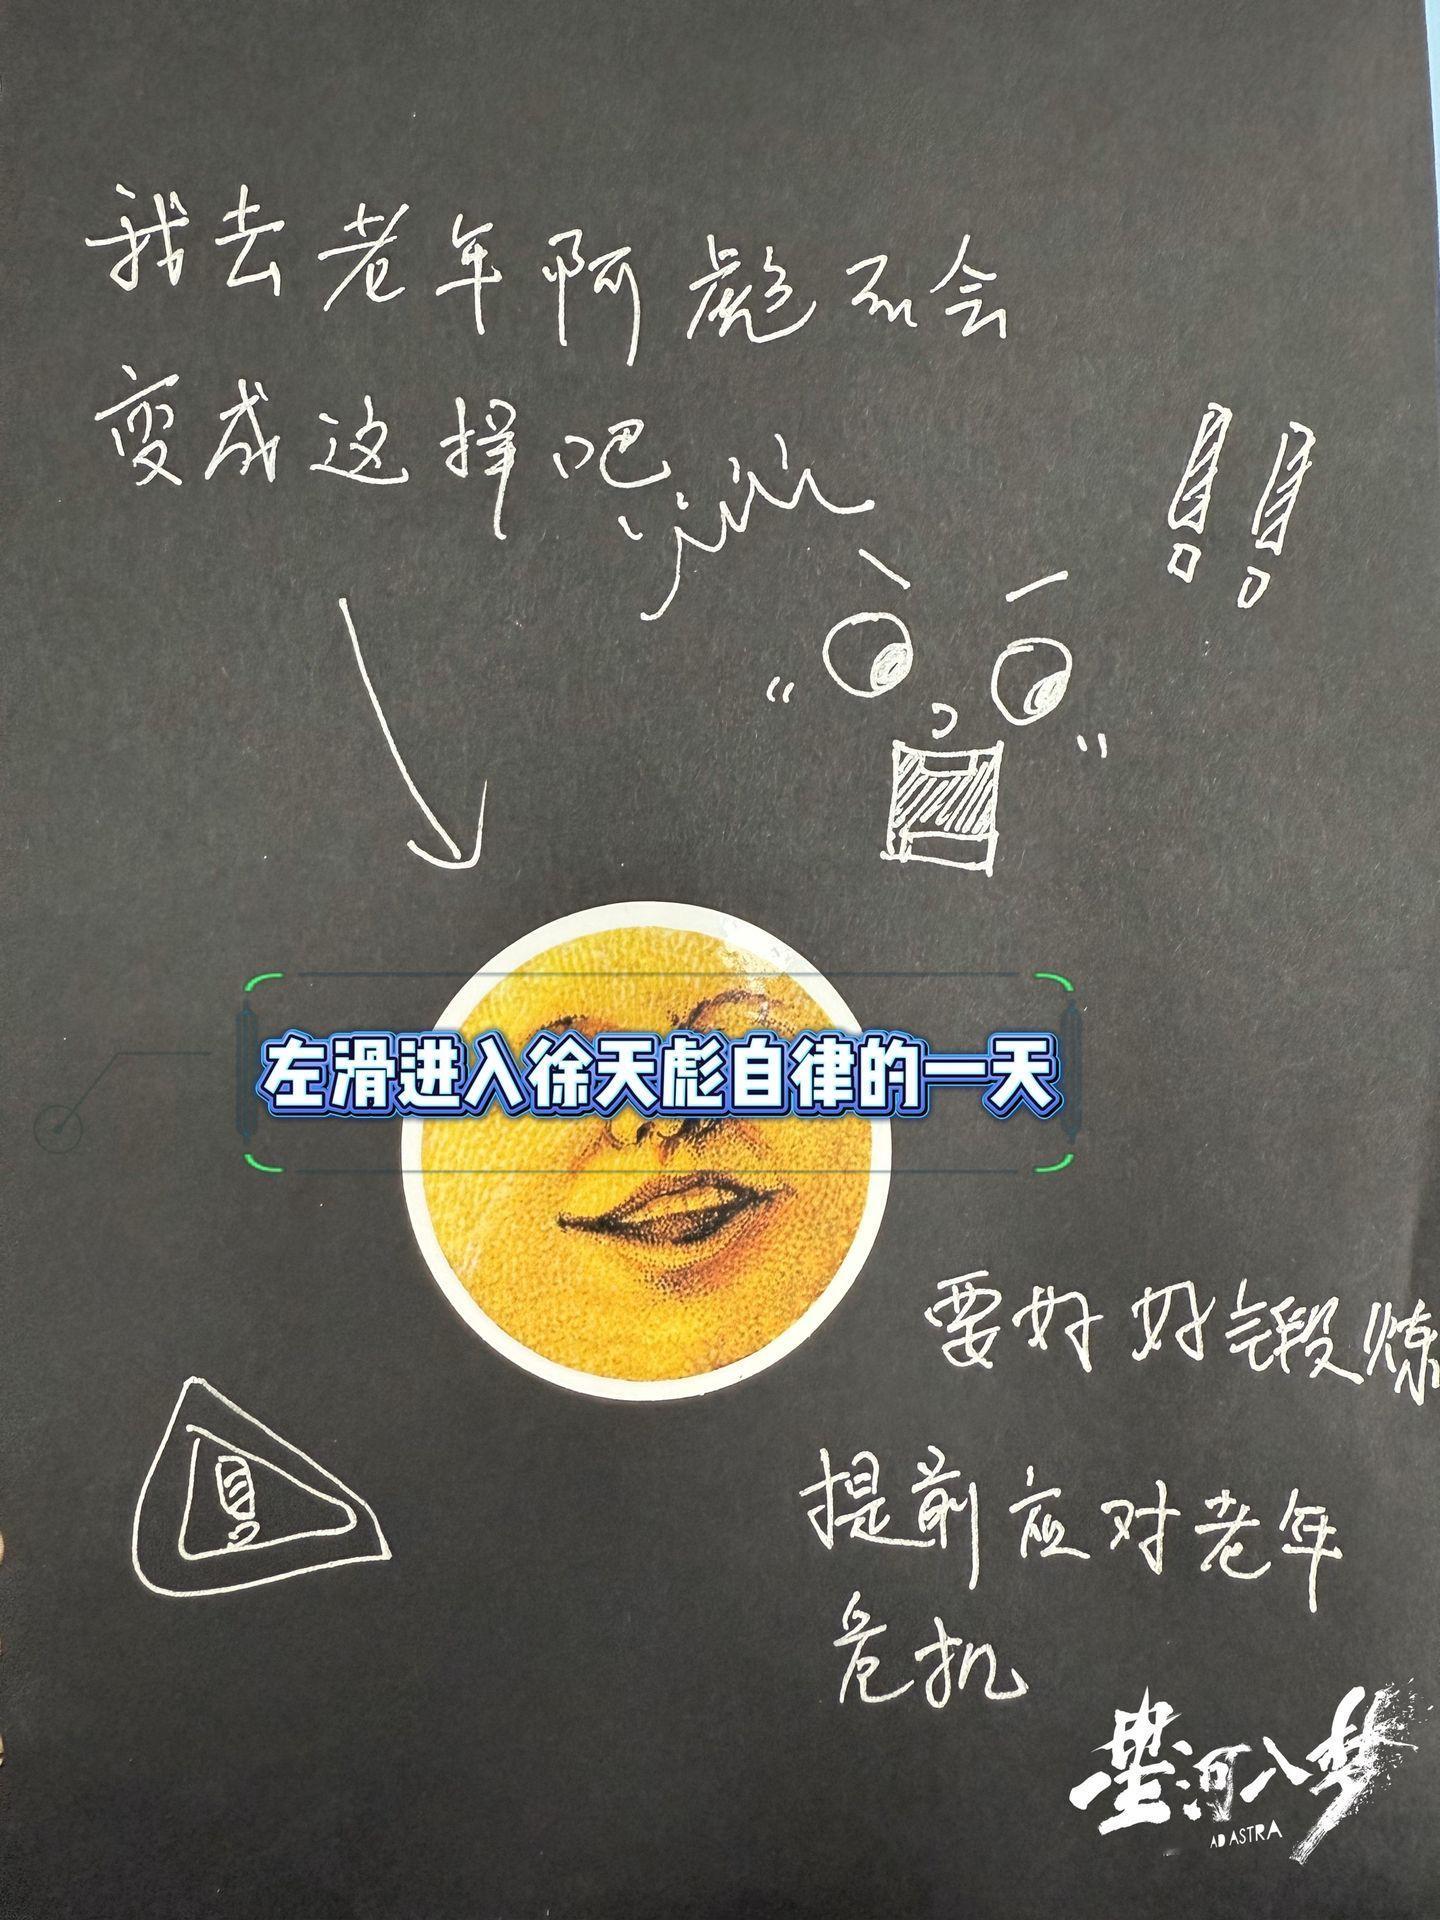 我去老年阿彪不会
变成这样吧
!!
左滑进入徐天彪自律的一天
要好好锻炼
提前应对老年
危机
!
星河入梦
AD ASTRA